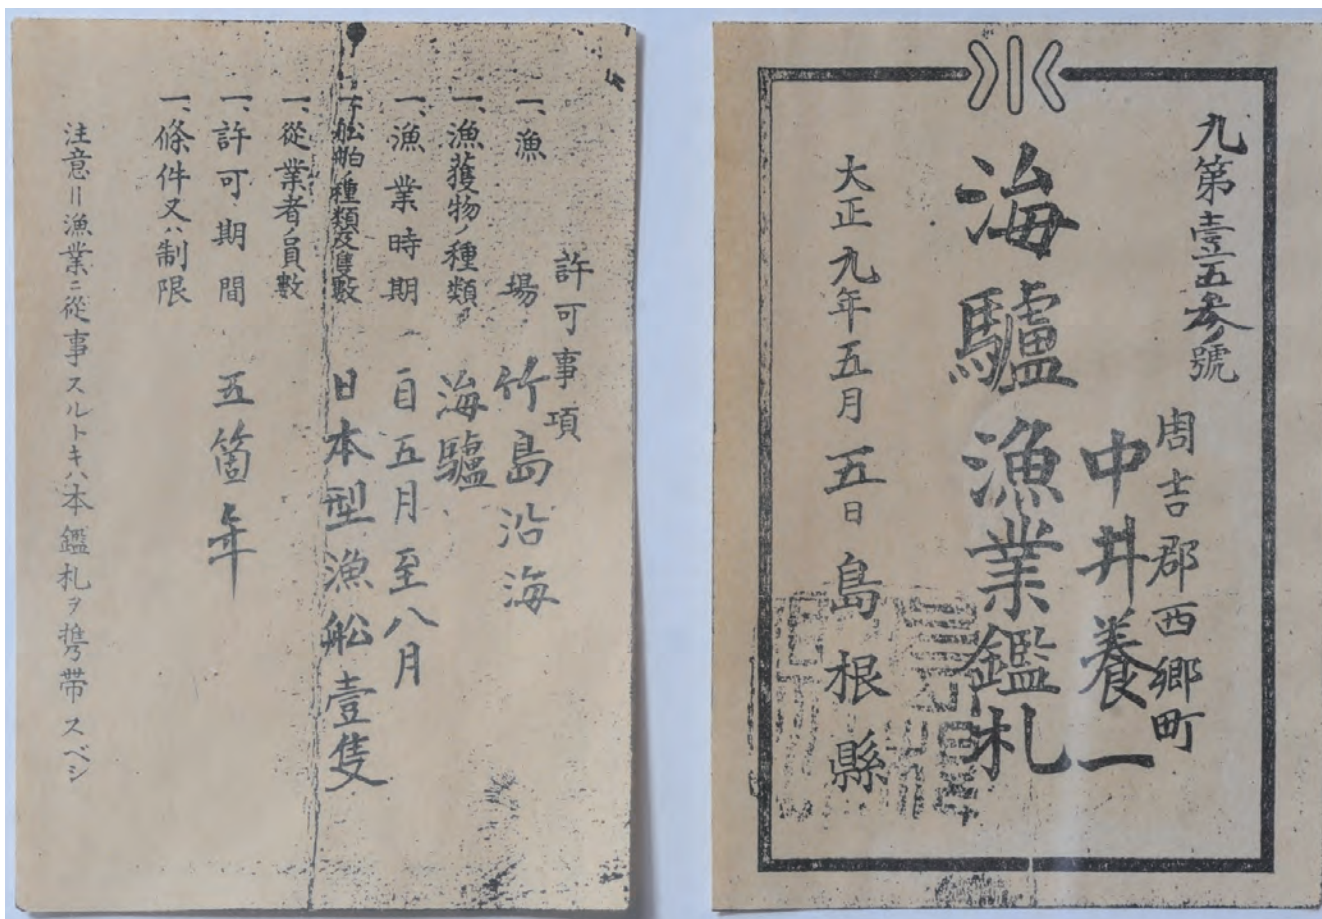 九第壹五参號
周吉郡西郷町
中井養一
海驢漁業鑑札
大正九年五月五日島根縣
許可事項
一、漁場 竹島沿海
一、漁獲物ノ種類 海驢
一、漁業時期 自五月至八月
一、舩舶ノ種類及隻數 日本型漁舩壹隻
一、從業者ノ員數
一、許可期間 五箇年
一、條件又ハ制限
注意〢漁業ニ從事スルトキハ本鑑札ヲ携帯スベシ